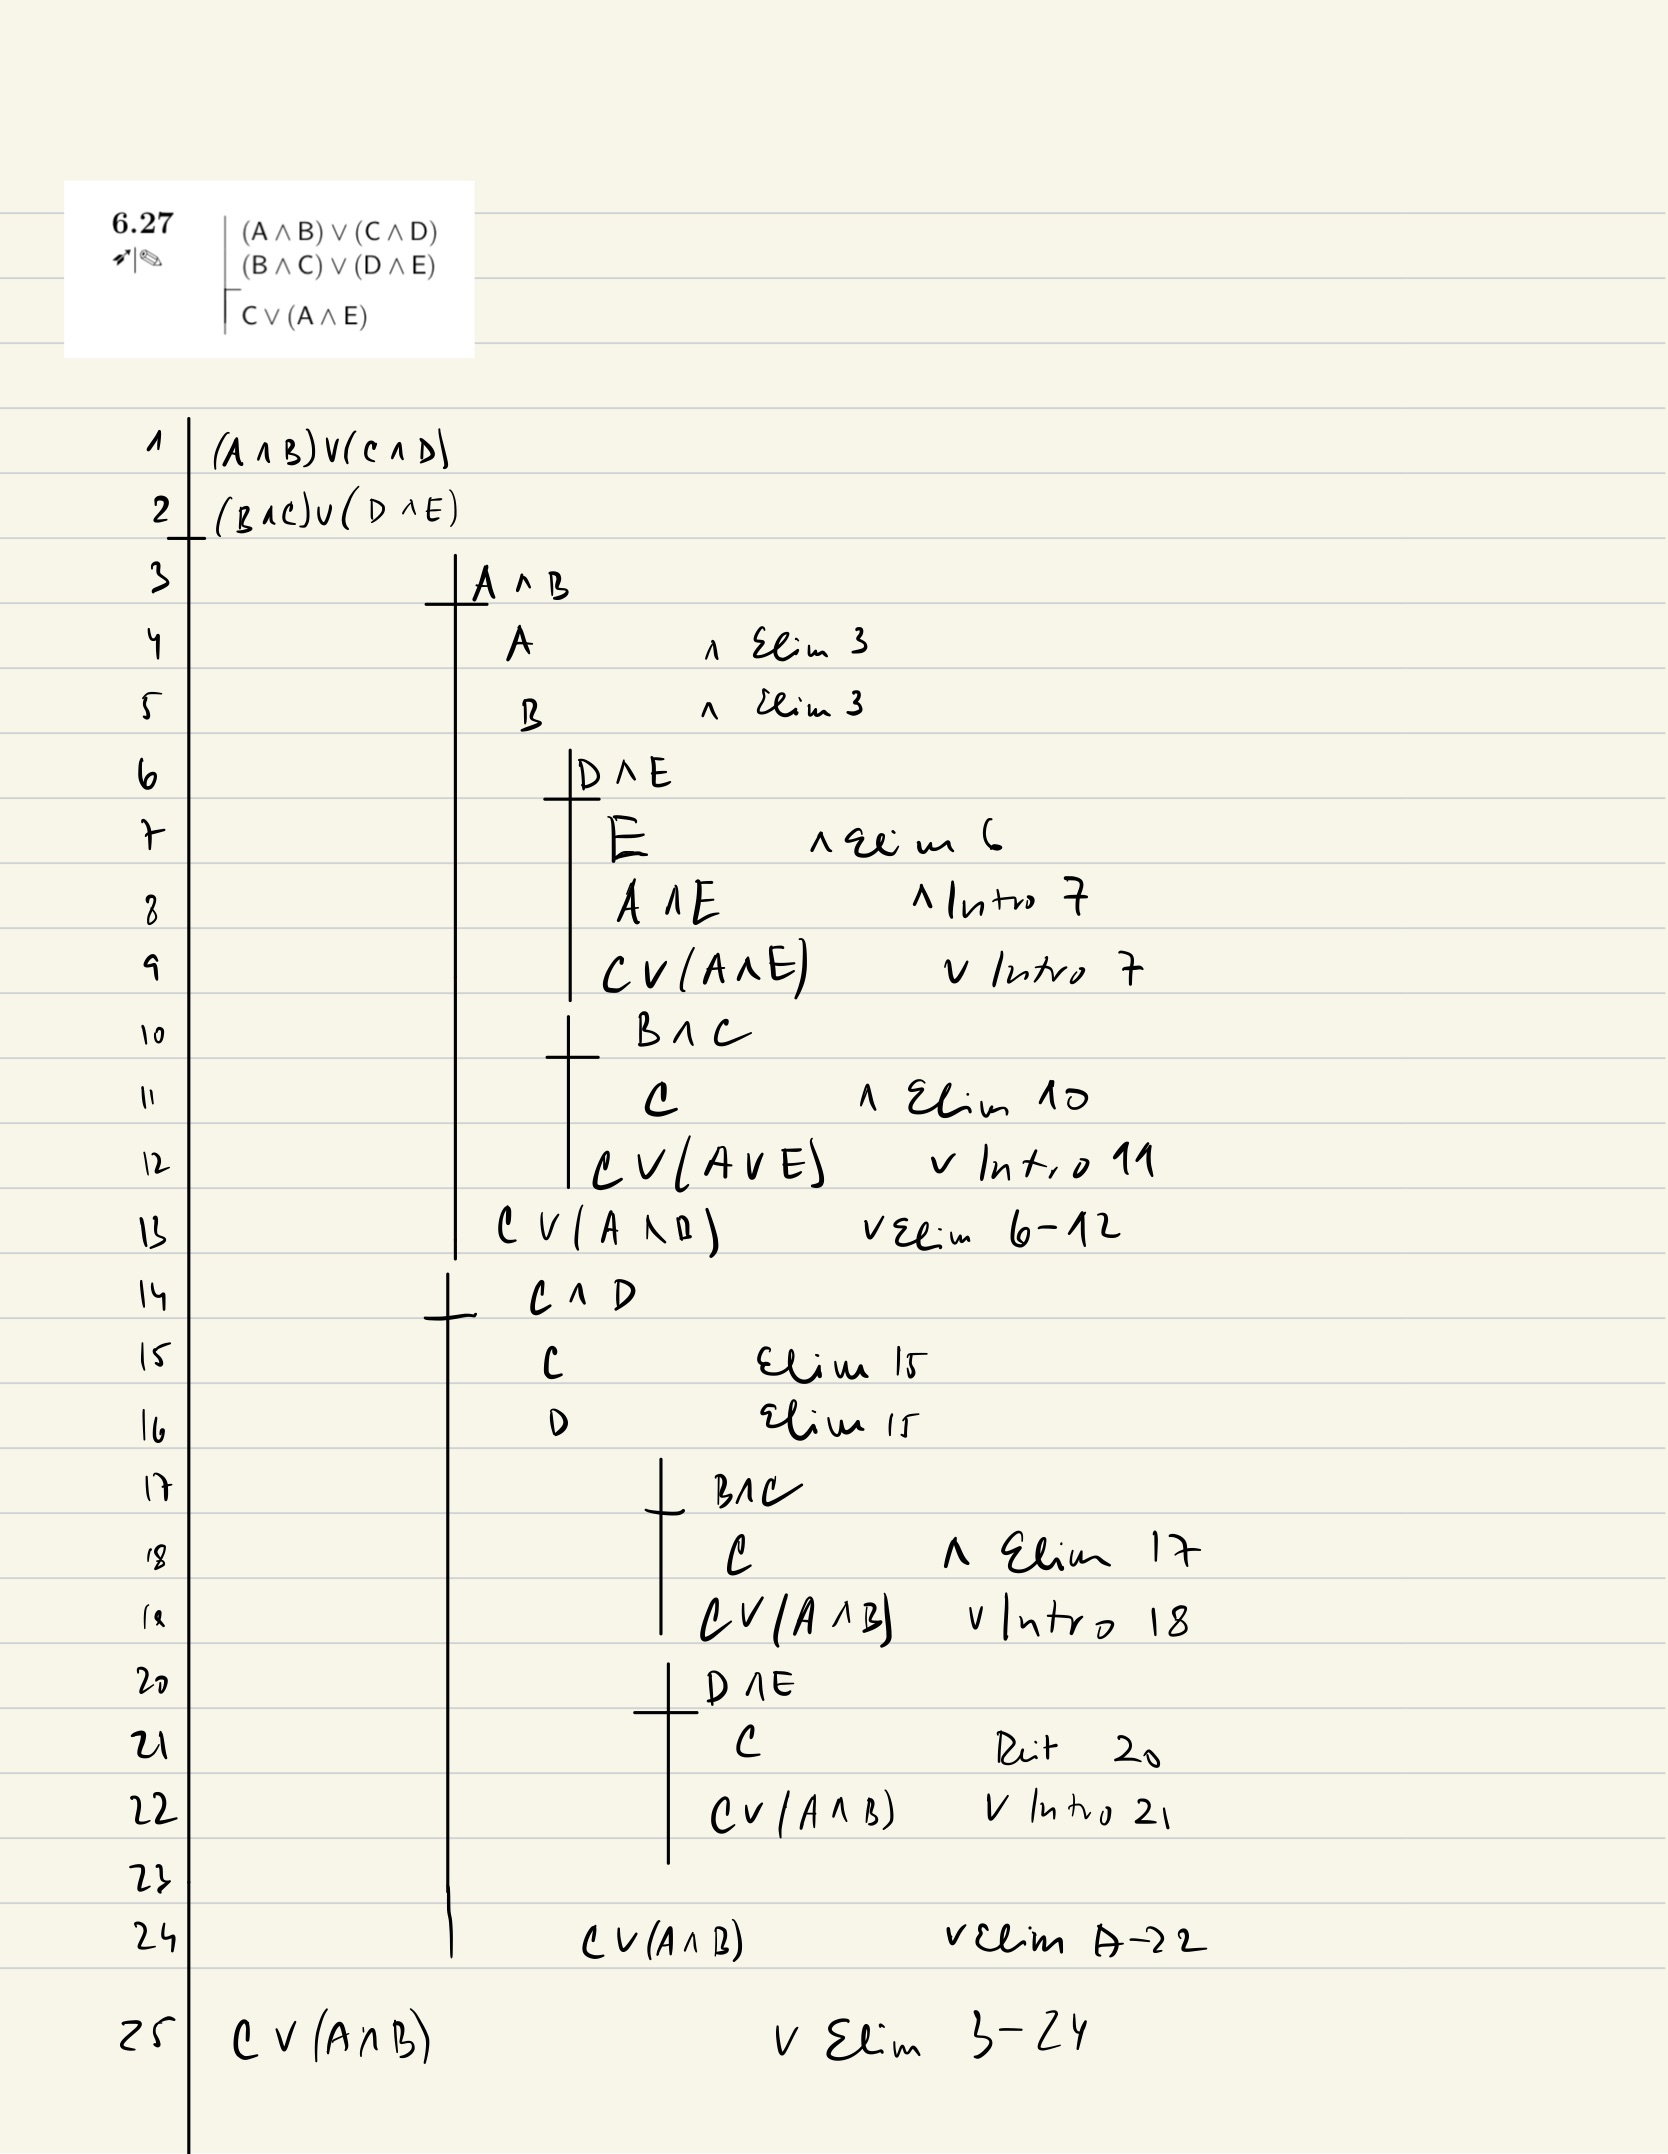 6.27 (A ∧ B) ∨ (C ∧ D)
(B ∧ C) ∨ (D ∧ E)
C ∨ (A ∧ E)
1 (A ∧ B) ∨ (C ∧ D)
2 (B ∧ C) ∨ (D ∧ E)
3 A ∧ B
4 A ∧ Elim 3
5 B ∧ Elim 3
6 D ∧ E
7 E ∧ Elim 6
8 A ∧ E ∧ Intro 7
9 C ∨ (A ∧ E) ∨ Intro 7
10 B ∧ C
11 C ∧ Elim 10
12 C ∨ (A ∨ E) ∨ Intro 11
13 C ∨ (A ∧ B) ∨ Elim 6-12
14 C ∧ D
15 C Elim 15
16 D Elim 15
17 B ∧ C
18 C ∧ Elim 17
19 C ∨ (A ∧ B) ∨ Intro 18
20 D ∧ E
21 C Reit 20
22 C ∨ (A ∧ B) ∨ Intro 21
23
24 C ∨ (A ∧ B) ∨ Elim -22
25 C ∨ (A ∧ B) ∨ Elim 3-24